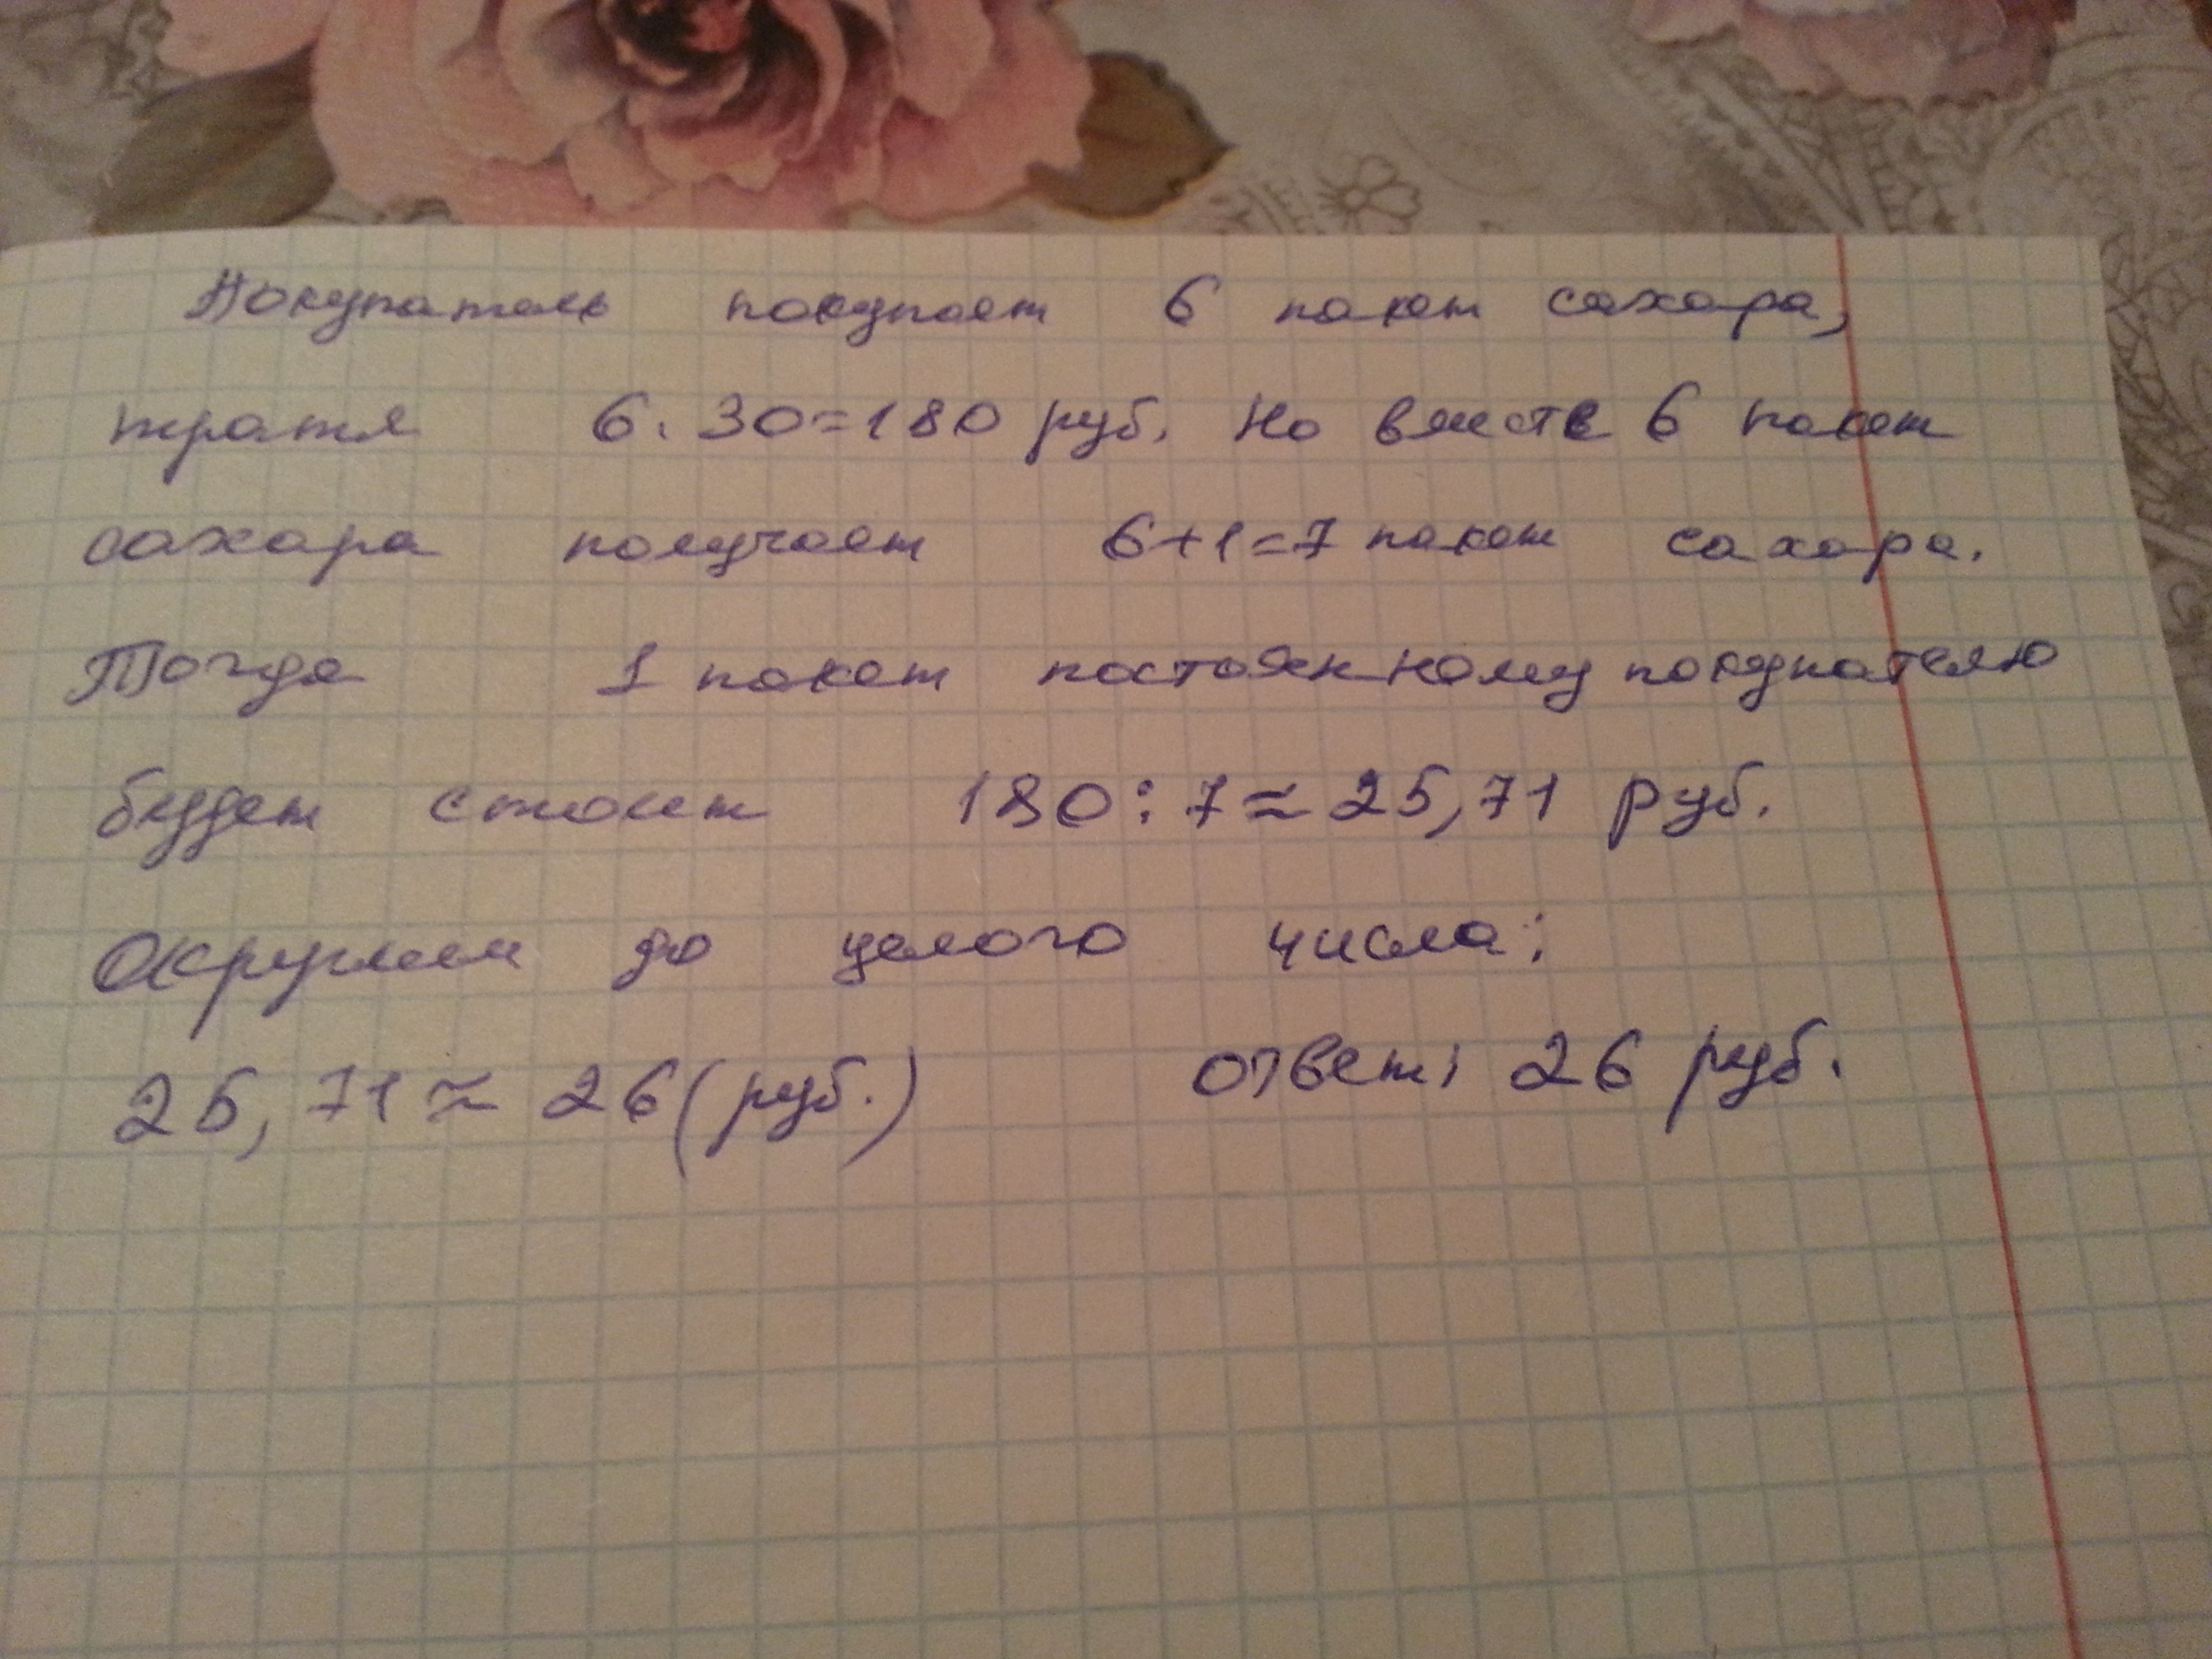 Покупатель покупает 6 пакет сахара,
тратя 6. 30=180 руб. Но вместв 6 пакет
сахара получает 6+1=7 пакет сахара.
Тогда 1 пакет постоянному покупателю
будет стоит 180:7≈25,71 руб.
Округлим до целого числа:
25,71≈26(руб.) ответ: 26 руб.